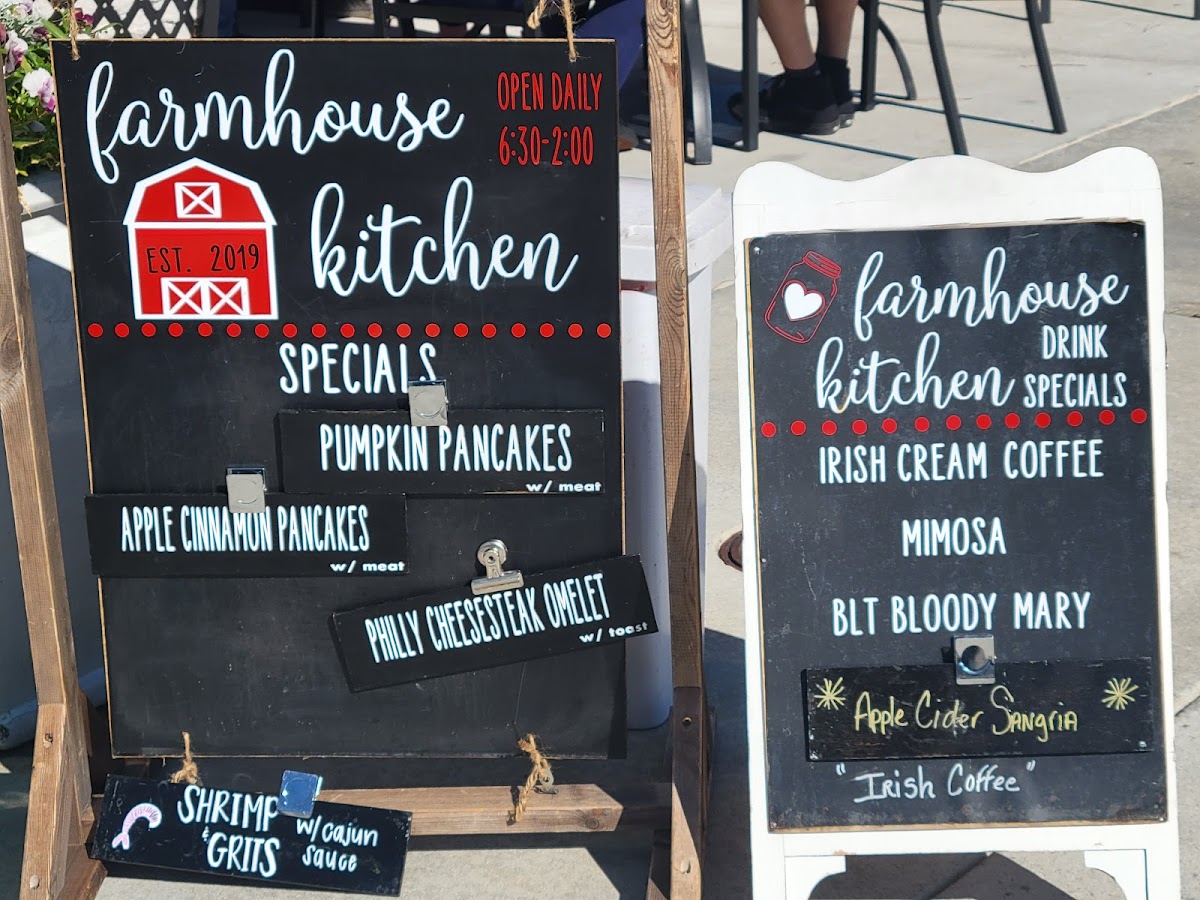 farmhouse
kitchen
OPEN DAILY
6:30-2:00
EST. 2019
SPECIALS
PUMPKIN PANCAKES
w/ meat
APPLE CINNAMON PANCAKES
w/ meat
PHILLY CHEESESTEAK OMELET
w/ toast
SHRIMP
& GRITS
w/ cajun
sauce
farmhouse
kitchen
DRINK
SPECIALS
IRISH CREAM COFFEE
MIMOSA
BLT BLOODY MARY
Apple Cider Sangria
"Irish Coffee"